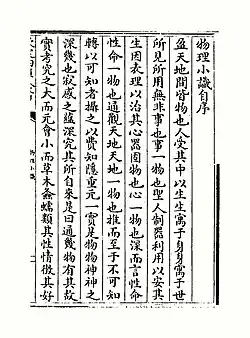 物理小識自序
盈天地間皆物也人受其中以生生寓于身身寓于世
所見所用無非事也事一物也聖人制器利用以安其
生因表理以治其心器固物也心一物也深而言性命
性命一物也通觀天地天地一物也推而至于不可知
轉以可知者攝之以費知隱重玄一實是物物神神之
深幾也寂感之蘊深究其所自來是曰通幾物有其故
實考究之大而元會小而草木螽蠕類其性情徵其好